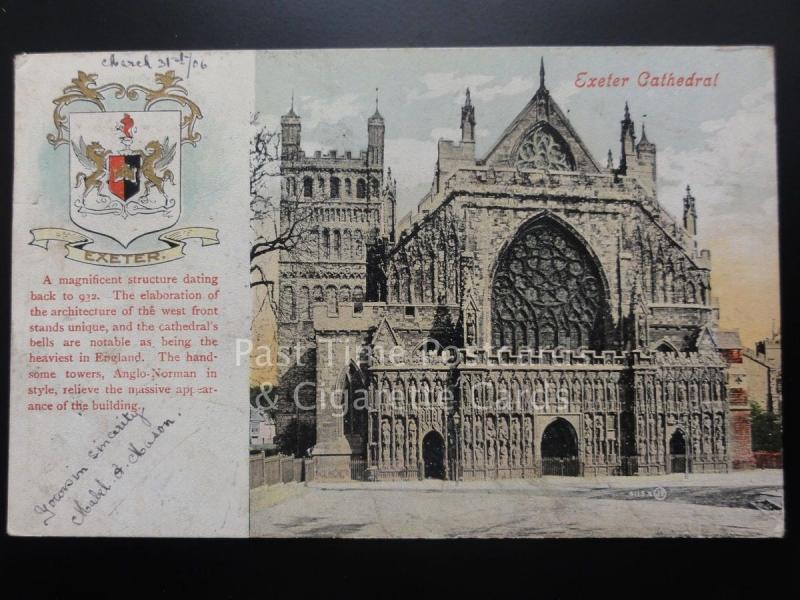 March 31st/06
Exeter Cathedral
EXETER.
A magnificent structure dating
back to 932. The elaboration of
the architecture of the west front
stands unique, and the cathedral's
bells are notable as being the
heaviest in England. The hand-
some towers, Anglo-Norman in
style, relieve the massive appear-
ance of the building.
Yours in sincarity
Mabel. A. Mason.
Past Time Postcards
& Cigarette Cards